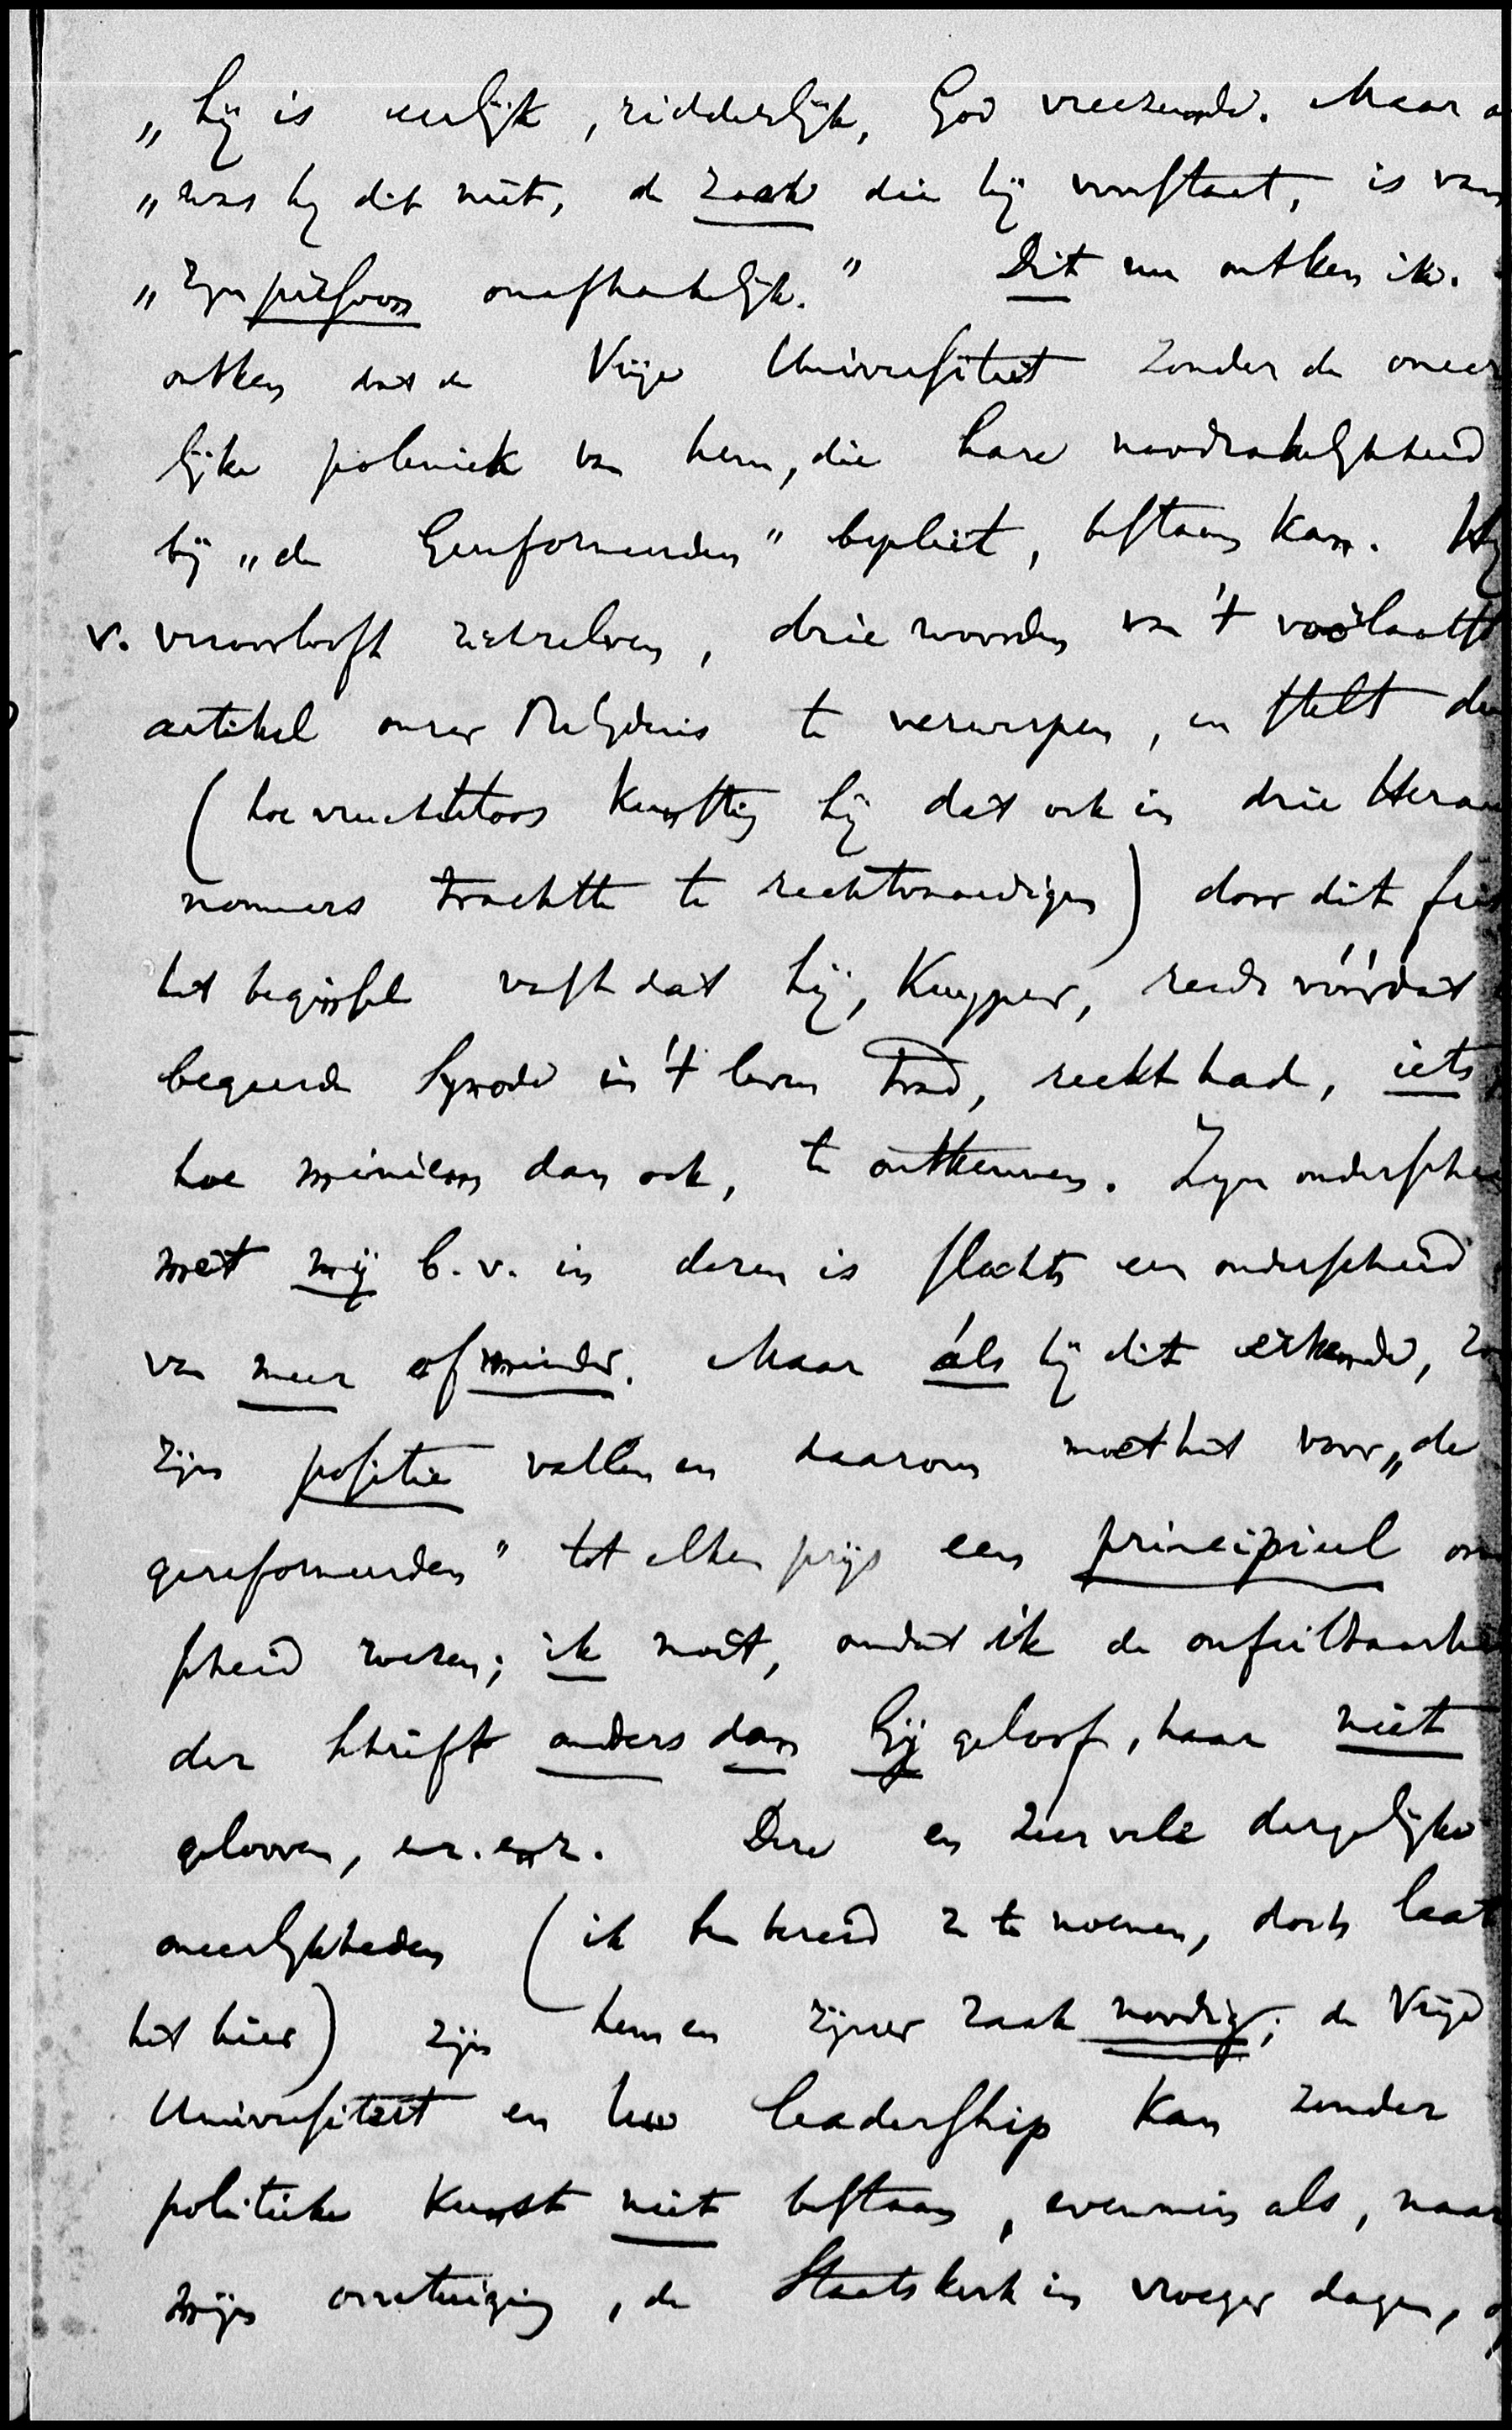 „ hij is eerlijk, ridderlijk, God vreezende. Maar a
„ was hij dit niet, de zaak die hij voorstaat, is van
„ zijn persoon onafhankelijk." Dit nu ontken ik.
ontken dat de Vrije Universiteit zonder de oneer
lijke polemiek van hem, die hare noodzakelijkheid
bij „de Gereformeerden" bepleit, bestaan kan. Hij
v. veroorlooft zichzelven, drie woorden van 't voorlaatst
artikel onzer Belijdenis te verwerpen, en stelt de
(hoe vruchteloos kunstig hij dat ook in drie Herau
nommers trachtte te rechtvaardigen) door dit fei
het beginsel vast dat hij, Kuyper, reeds vóórdat
begeerde Synode in 't leven trad, recht had, iets,
hoe miniem dan ook, te ontkennen. Zijn ondersche
met mij b.v. in dezen is slechts een onderscheid
van meer of minder. Maar áls hij dit erkende, zo
zijn positie vallen en daarom moet het voor „de
gereformeerden" tot elken prijs een principieel on
scheid wezen; ik moet, omdat ik de onfeilbaarhe
der Schrift anders dan hij geloof, haar niet
gelooven, enz. enz. Deze en zeer vele dergelijke
oneerlijkheden (ik ben bereid ze te noemen, doch laat
het hier) zijn hem en zijner zaak noodig; de Vrije
Universiteit en leadership kan zonder
politieke kunst niet bestaan, evenmin als, naar
mijn overtuiging, de Staatskerk in vroeger dagen,